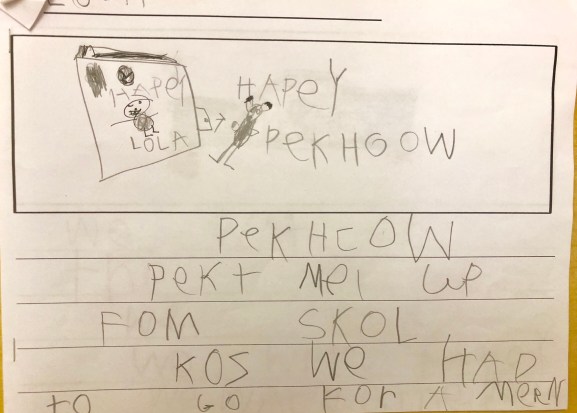 HAPEY HAPEY
LOLA PeKHOOW
PeKHCOW
PeKt MEI UP
FOM SKOL
KOS We HAD
to GO FOr A MeeRN